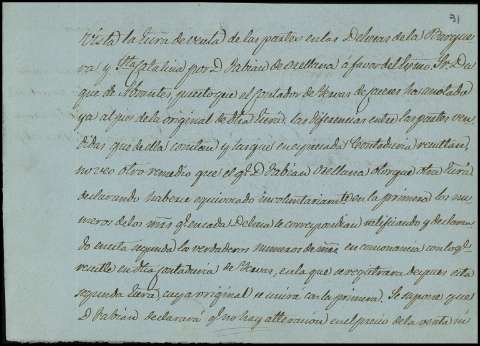 31
Vista la Escra de venta de las partes en las Dehesas de la Brorque
ra y Sta Catalina por D. Fabian de Orellana a favor del Exmo. Sr. Du
que de Frontes, puesto que el contador de Yervas de puesta ha anotado
ya al pie de la original de dha Escra. las diferencias entre las partes ven
didas que de ella constan y las que en expresada Contaduria resultan,
no veo otro remedio que el qe. D. Fabian Orellana otorgue otra Escra.
declarando haberse equivocado involuntariamte en la primera los nu
meros de los mrs. qe. en cada Dehesa le correspondian ratificando y declaran
do en esta segunda los verdaderos numeros de mrs. en consonancia con lo qe.
resulte en dha contaduria de Yervas, en la que se registrara despues esta
segunda Escra, cuya original se unira con la primera. Se supone que
D. Fabian declarará qe. no hay alteracion en el precio de la venta ni